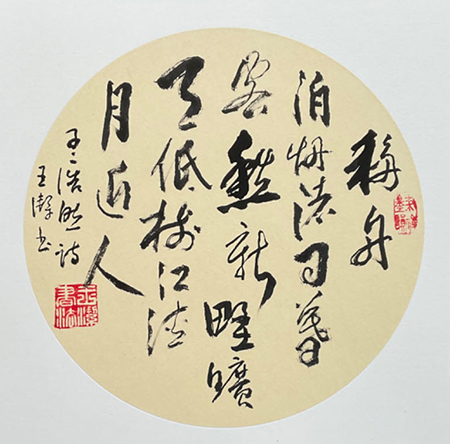 移舟
泊烟渚日暮
客愁新野曠
天低树江清
月近人
孟浩然诗
王 书